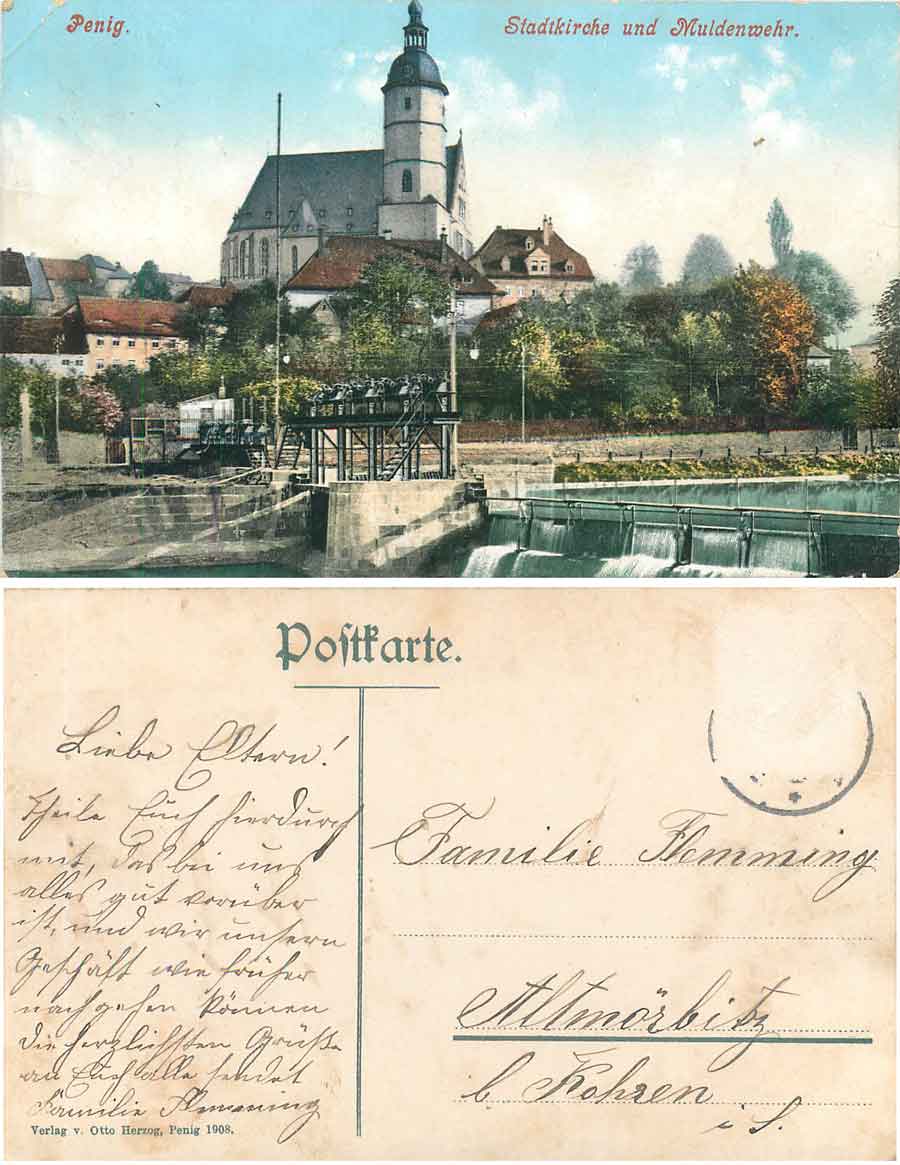 Penig.
Stadtkirche und Muldenwehr.
Postkarte.
Liebe Eltern!
theile Euch hierdurch
mit, das bei uns
alles gut vorüber
ist, und wir unsern
Geschäft wie früher
nachgehen können
die herzlichsten Grüße
an Euch alle sendet
Familie Flemming
Verlag v. Otto Herzog, Penig 1908.
Familie Flemming
Altmörbitz
b. Kohren
i. S.